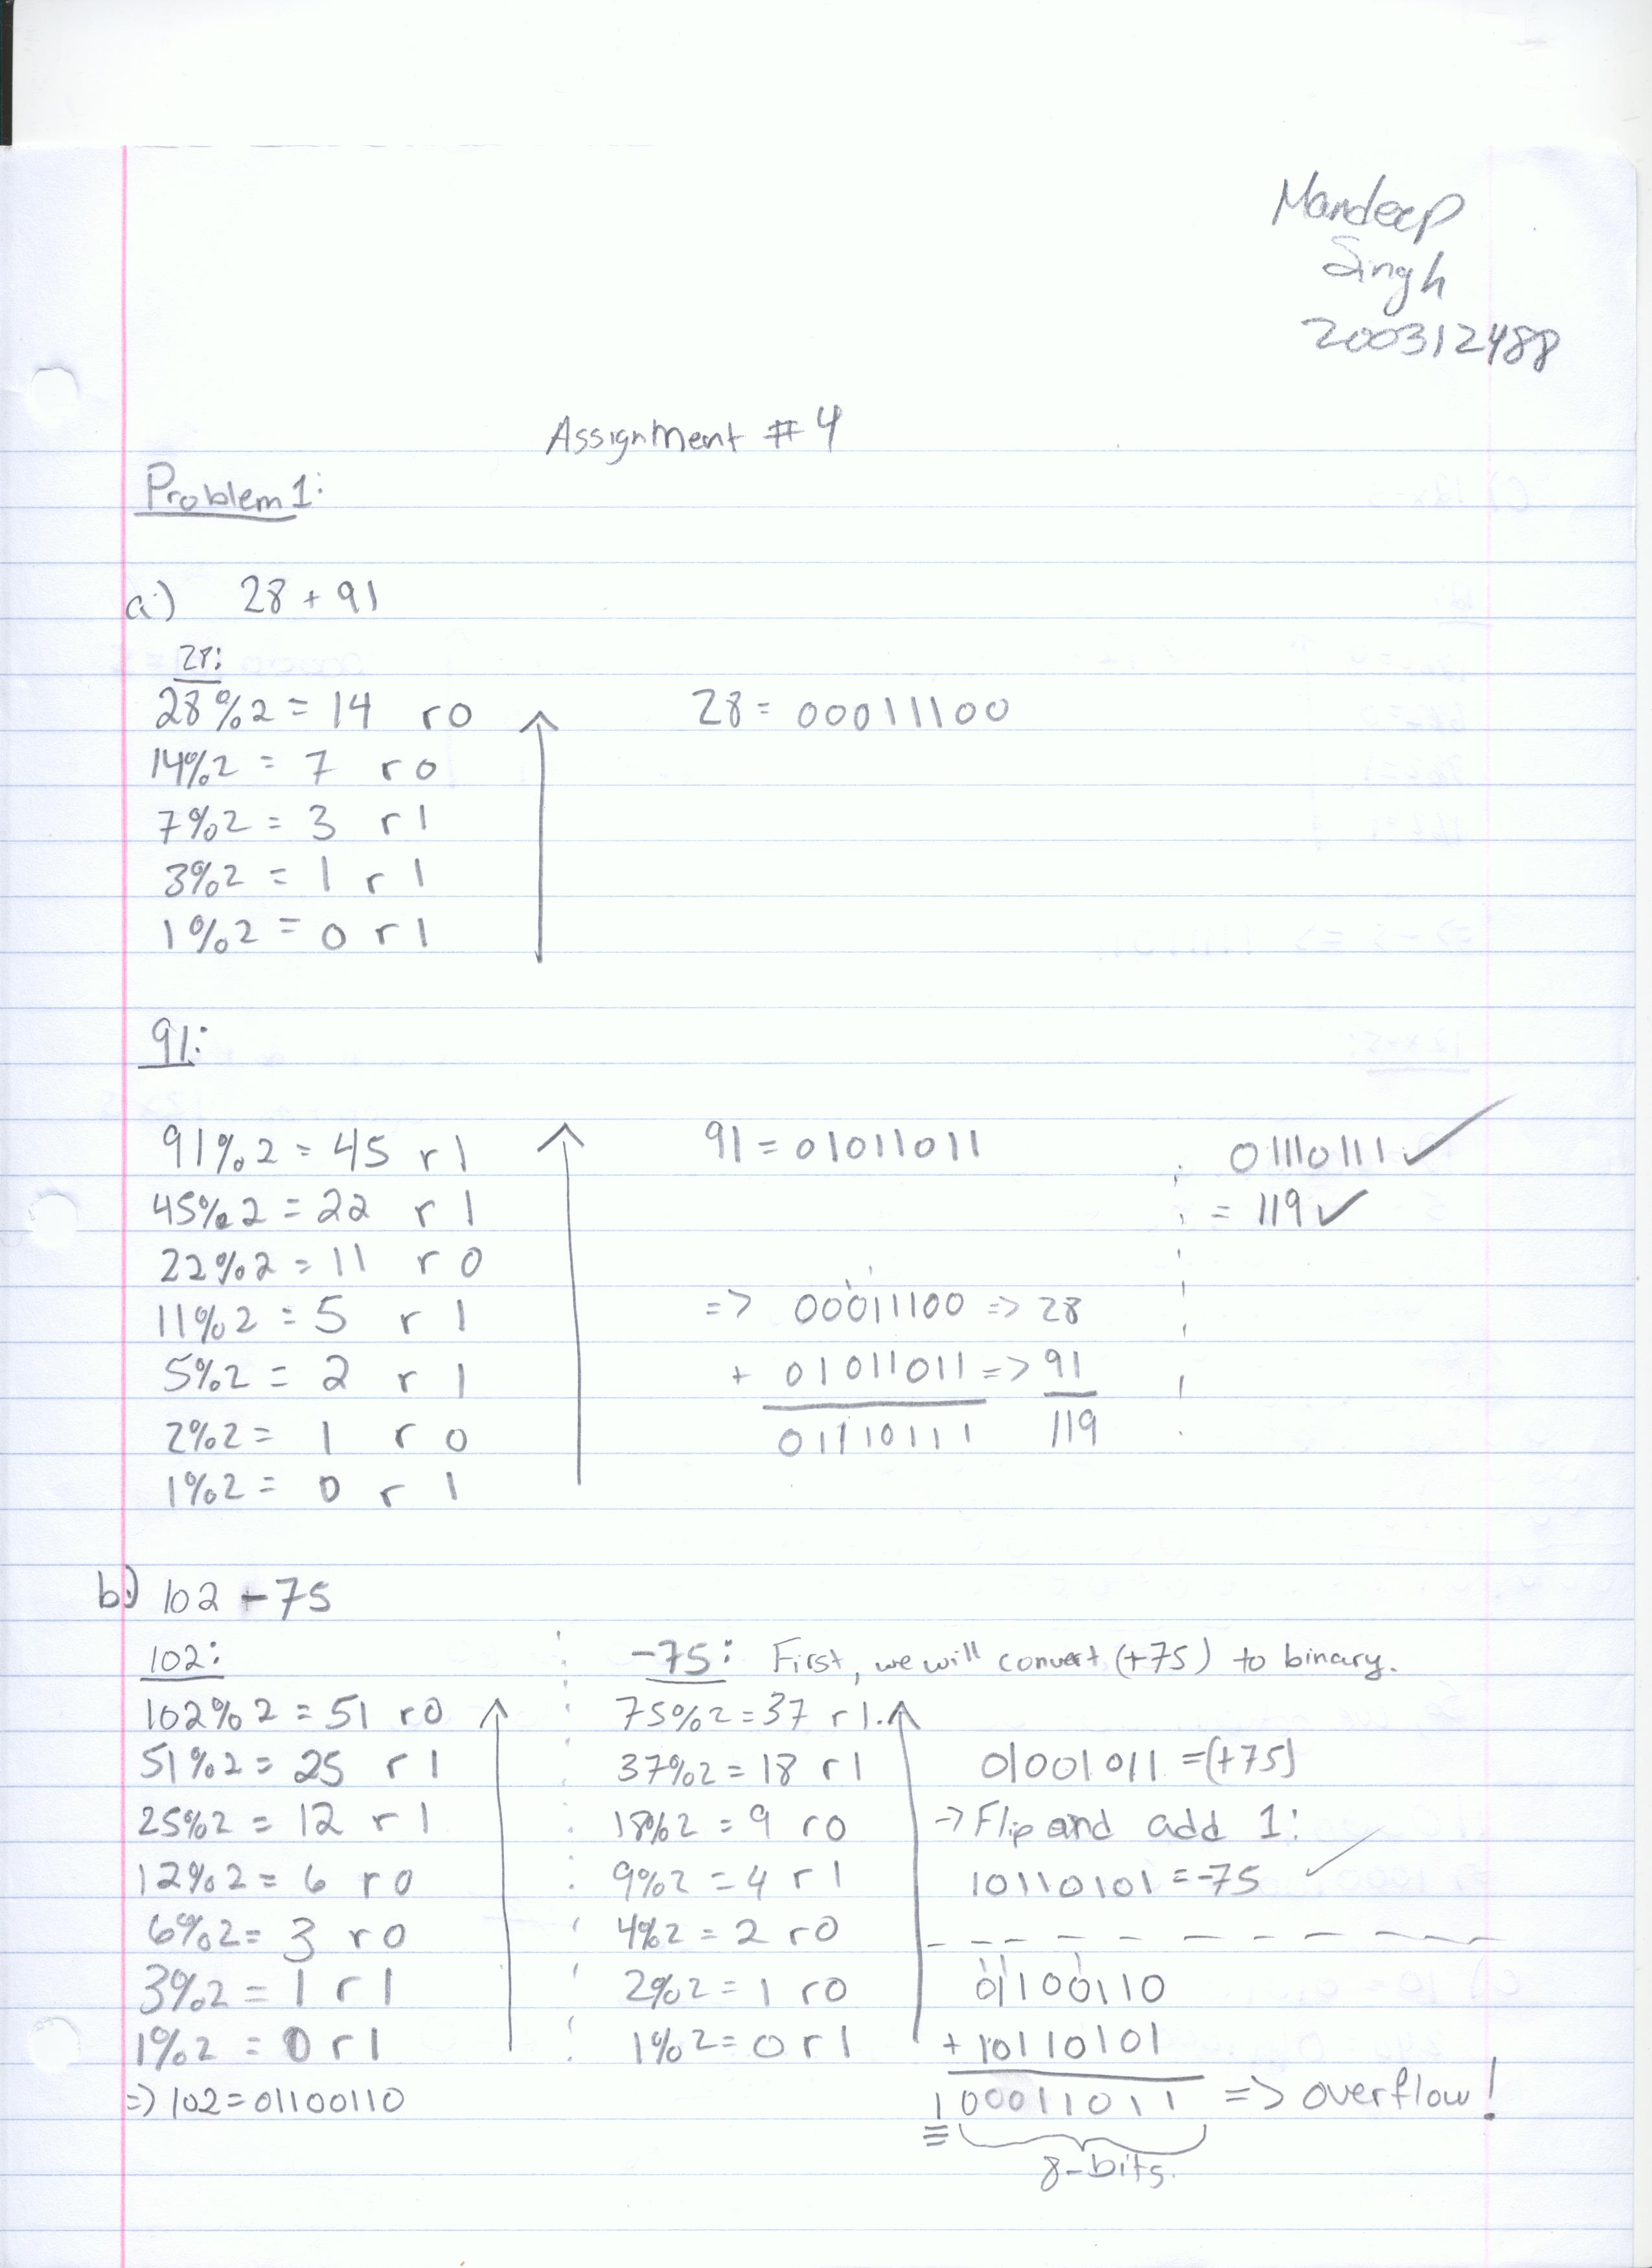 Mandeep
Singh
200312488
Assignment #4
Problem 1:
a) 28 + 91
28:
28%2 = 14 r0
14%2 = 7 r0
7%2 = 3 r1
3%2 = 1 r1
1%2 = 0 r1
28 = 00011100
91:
91%2 = 45 r1
45%2 = 22 r1
22%2 = 11 r0
11%2 = 5 r1
5%2 = 2 r1
2%2 = 1 r0
1%2 = 0 r1
91 = 01011011
=> 00011100 => 28
+ 01011011 => 91
01110111 119
01110111 ✓
= 119 ✓
b) 102 - 75
102:
102%2 = 51 r0
51%2 = 25 r1
25%2 = 12 r1
12%2 = 6 r0
6%2 = 3 r0
3%2 = 1 r1
1%2 = 0 r1
=> 102 = 01100110
-75: First, we will convert (+75) to binary.
75%2 = 37 r1.
37%2 = 18 r1
18%2 = 9 r0
9%2 = 4 r1
4%2 = 2 r0
2%2 = 1 r0
1%2 = 0 r1
01001011 = (+75)
-> Flip and add 1:
10110101 = -75 ✓
01100110
+ 10110101
100011011 => overflow!
8-bits.